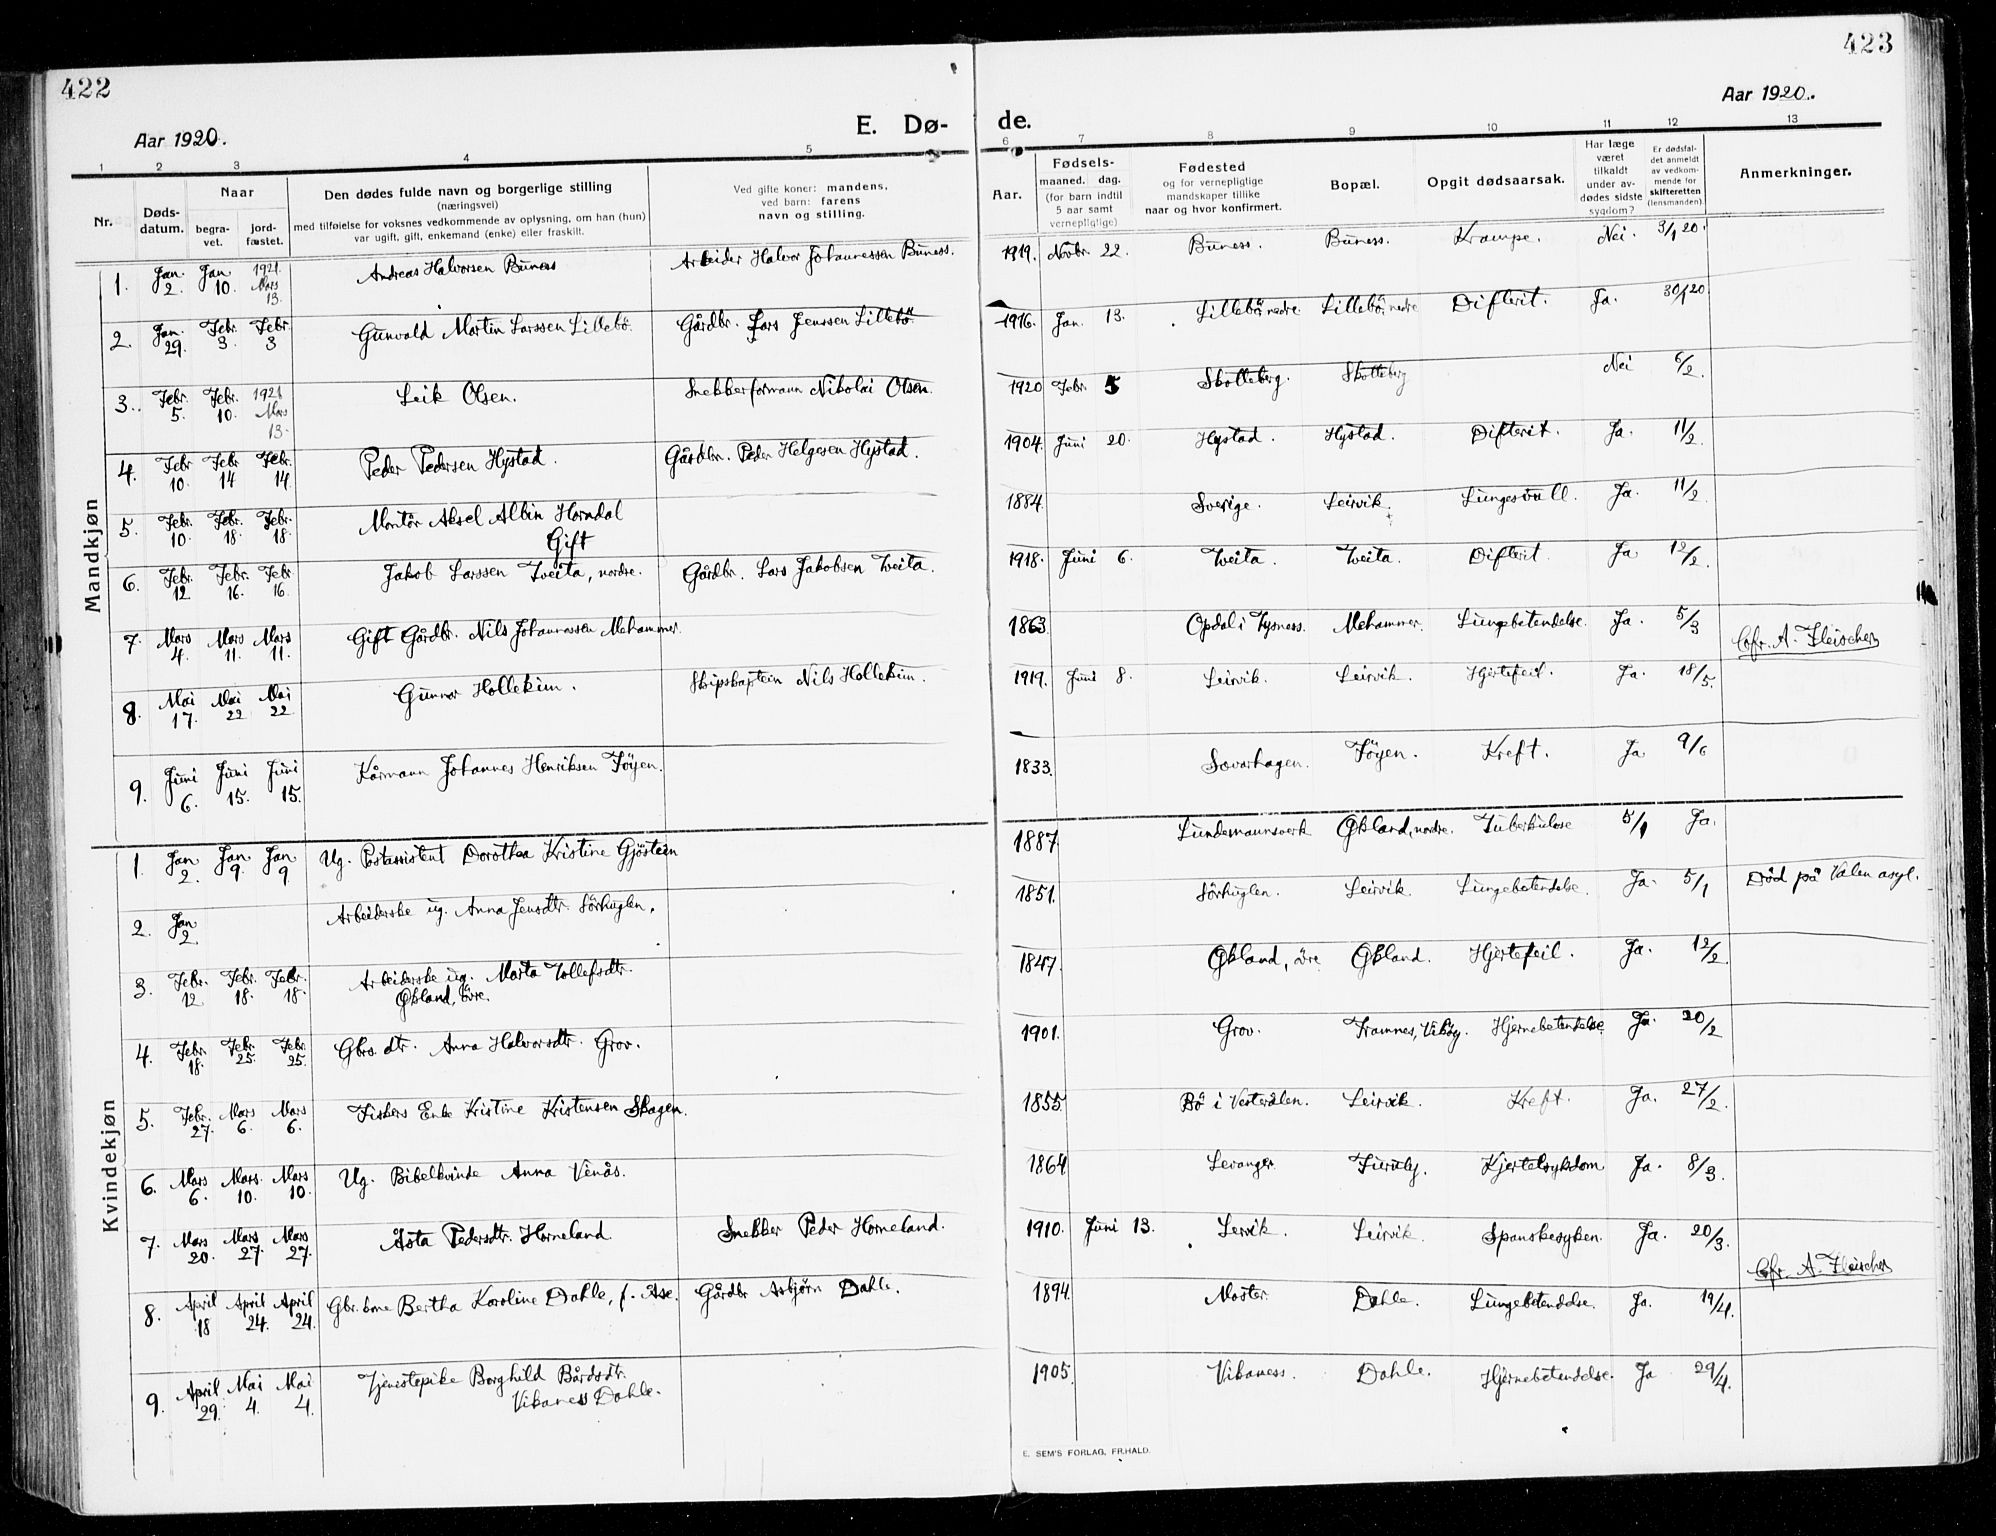 422
423
Aar 1920.
E. Dø-
de.
Aar 1920.
1 2 3 4 5 6 7 8 9 10 11 12 13
Nr.
Døds-
datum.
Naar
begra-
vet.
jord-
fæstet.
Den dødes fulde navn og borgerlige stilling
(næringsvei)
med tilføielse for voksnes vedkommende av oplysning, om han (hun)
var ugift, gift, enkemand (enke) eller fraskilt.
Ved gifte koner: mandens,
ved barn: farens
navn og stilling.
Aar.
Fødsels-
maaned. dag.
(for barn indtil
5 aar samt
vernepligtige)
Fødested
og for vernepligtige
mandskaper tillike
naar og hvor konfirmert.
Bopæl.
Opgit dødsaarsak.
Har læge
været
tilkaldt
under av-
dødes sidste
sygdom?
Er dødsfal-
det anmeldt
av vedkom-
mende for
skifteretten
(lensmanden).
Anmerkninger.
Mandkjøn
1. Jan. 2. Jan. 10. 1921. Mars 13. Andreas Halvorsen Buness Arbeider Halvor Johannessen Buness. 1919. Novbr. 22. Buness. Buness. Krampe. Nei. 3/1 20.
2. Jan. 29. Febr. 3. Febr. 3 Gunvald Martin Larssen Lillebö. Gårdbr. Lars Jenssen Lillebö. 1916. Jan. 13. Lillebö, nedre Lillebö, nedre Difterit. Ja. 30/1 20
3. Febr. 5. Febr. 10. 1921 Mars 13. Leik Olsen. Snekkerformann Nikolai Olsen. 1920 Febr. 5 Skotteberg. Skotteberg Nei 6/2.
4. Febr 10. Febr 14 Febr. 14. Peder Pedersen Hystad. Gårdbr. Peder Helgesen Hystad. 1904. Juni 20. Hystad. Hystad. Difterit. Ja. 11/2.
5. Febr. 10. Febr. 18. Febr. 18. Montör Aksel Albin Horndal
Gift 1884. Sverige. Leirvik. Ja. 11/2.
6. Febr. 12 Febr. 16. Febr 16. Jakob Larssen Tveita, nordre. Gårdbr. Lars Jakobsen Tveita. 1918. Juni 6. Tveita. Tveita. Difterit. Ja 12/2.
7. Mars 4. Mars 11. Mars 11. Gift Gårdbr. Nils Johannessen Mehammer. 1863. Opdal i Tysness. Mehammer. Lungebetendelse. Ja. 5/3
Cfr. A. Fleischer
8. Mai 17. Mai 22 Mai 22. Gunnar Hollekim. Skipskaptein Nils Hollekim. 1919. Juni 8. Leirvik. Leirvik. Hjertefeil. Ja. 18/5.
9. Juni 6. Juni 15. Juni 15. Kårmann Johannes Henriksen Föyen. 1833. Sovarhagen. Föyen. Kreft. Ja 9/6
Kvindekjøn
1. Jan 2. Jan 9. Jan 9. Ug. Postassistent Dorothea Kristine Gjöstein 1887. Lundemannsverk Økland, nordre. Tuberkulose 5/1 Ja.
2. Jan 2. Arbeiderske ug. Anna Jensdtr. Sörhuglen. 1851. Sörhuglen. Leirvik. Lungebetendelse. Ja. 5/1 Död på Valen asyl.
3. Febr. 12 Febr. 18. Febr. 18. Arbeiderske ug. Marta Tollefsdtr.
Økland, övre. 1847. Økland, övre Økland. Hjertefeil. Ja. 12/2
4. Febr. 18. Febr. 25. Febr. 25. Gbrs. dtr. Anna Halvorsdtr. Grov. 1901. Grov. Framnes, Vikøy. Hjernebetendelse Ja. 20/2
5. Febr. 27. Mars 6. Mars 6. Fiskers Enke Kristine Kristensen Skagen. 1855. Bö i Vesterålen. Leirvik. Kreft. Ja. 27/2.
6. Mars 6. Mars. 10. Mars 10. Ug. Bibelkvinde Anna Venås. 1864 Levanger Furuly. Kjertelsykdom Ja. 8/3.
7. Mars 20. Mars 27. Mars 27. Åsta Pedersdtr. Horneland. Snekker Peder Horneland. 1910. Juni 13. Lervik. Leirvik. Spanskesyken. Ja. 20/3.
8. April 18 April 24. April 24. Gbr. kone Bertha Karoline Dahle, f. Åse. Gårdbr Asbjørn Dahle. 1894. Moster. Dahle. Lungebetendelse. Ja. 19/4.
Cfr. A. Fleischer
9. April 29. Mai 4. Mai 4. Tjenestepike Borghild Bårdsdtr.
Vikaness Dahle. 1905. Vikaness. Dahle. Hjernebetendelse. Ja 29/4.
E. SEM'S FORLAG, FR.HALD.